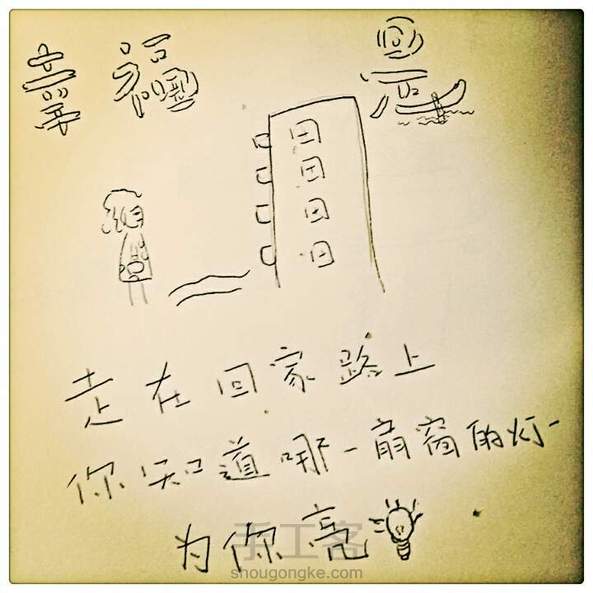 幸福是
走在回家路上
你知道哪一扇窗的灯
为你亮
手工客
shougongke.com